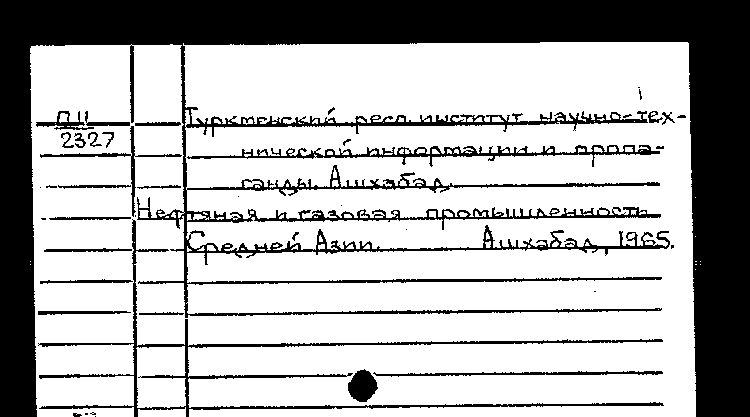 П 11
2327
Туркменский респ. институт научно-тех-
нической информации и пропа-
ганды. Ашхабад.
Нефтяная и газовая промышленность
Средней Азии. Ашхабад, 1965.